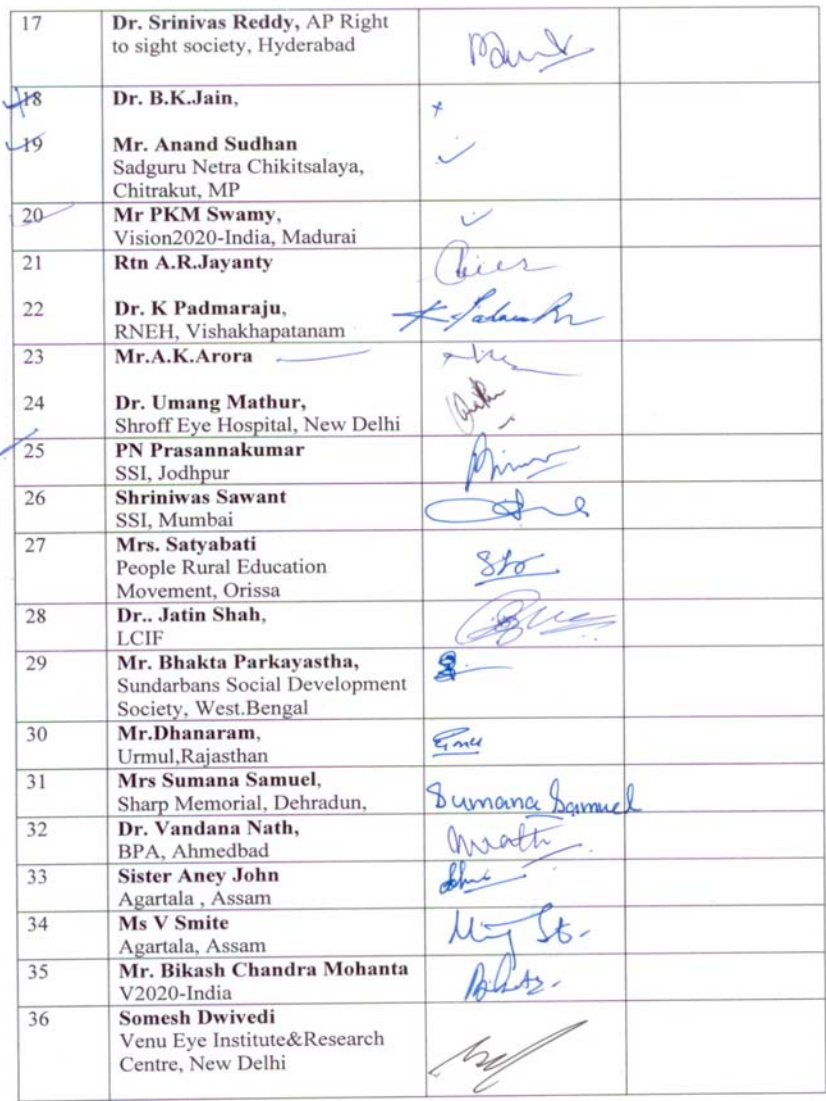 17 Dr. Srinivas Reddy, AP Right
to sight society, Hyderabad
18 Dr. B.K.Jain,
19 Mr. Anand Sudhan
Sadguru Netra Chikitsalaya,
Chitrakut, MP
20 Mr PKM Swamy,
Vision2020-India, Madurai
21 Rtn A.R.Jayanty
22 Dr. K Padmaraju,
RNEH, Vishakhapatanam
23 Mr.A.K.Arora
24 Dr. Umang Mathur,
Shroff Eye Hospital, New Delhi
25 PN Prasannakumar
SSI, Jodhpur
26 Shriniwas Sawant
SSI, Mumbai
27 Mrs. Satyabati
People Rural Education
Movement, Orissa
28 Dr.. Jatin Shah,
LCIF
29 Mr. Bhakta Parkayastha,
Sundarbans Social Development
Society, West.Bengal
30 Mr.Dhanaram,
Urmul,Rajasthan
31 Mrs Sumana Samuel, Sumana Samuel
Sharp Memorial, Dehradun,
32 Dr. Vandana Nath,
BPA, Ahmedbad
33 Sister Aney John
Agartala , Assam
34 Ms V Smite
Agartala, Assam
35 Mr. Bikash Chandra Mohanta
V2020-India
36 Somesh Dwivedi
Venu Eye Institute&Research
Centre, New Delhi